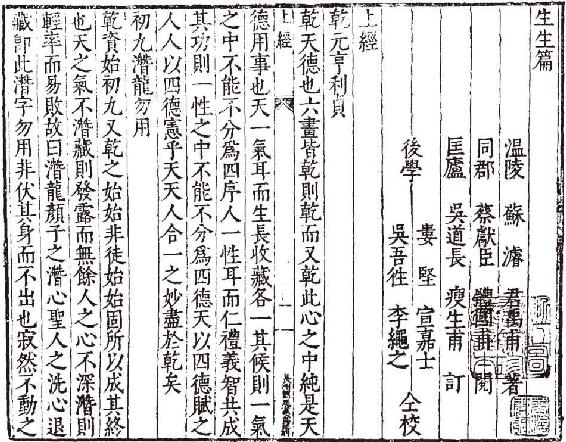 生生篇
温陵 蘇濬 君禹甫 著
同郡 蔡獻臣 體國甫 閱
匡廬 吳道長 瘦生甫 訂
後學 婁堅 宣嘉士
吳吾往 李繩之 仝校
上經
乾元亨利貞
乾天德也六畫皆乾則乾而又乾此心之中純是天
上經
德用事也天一氣耳而生長收藏各一其候則一氣
之中不能不分為四序人一性耳而仁禮義智共成
其功則一性之中不能不分為四德天以四德賦之
人人以四德憲乎天天人合一之妙盡於乾矣
初九潛龍勿用
乾資始初九又乾之始始非徒始始固所以成其終
也天之氣不潛藏則發露而無餘人之心不深潛則
輕率而易敗故曰潛龍顏子之潛心聖人之洗心退
藏即此潛字勿用非伏其身而不出也寂然不動之